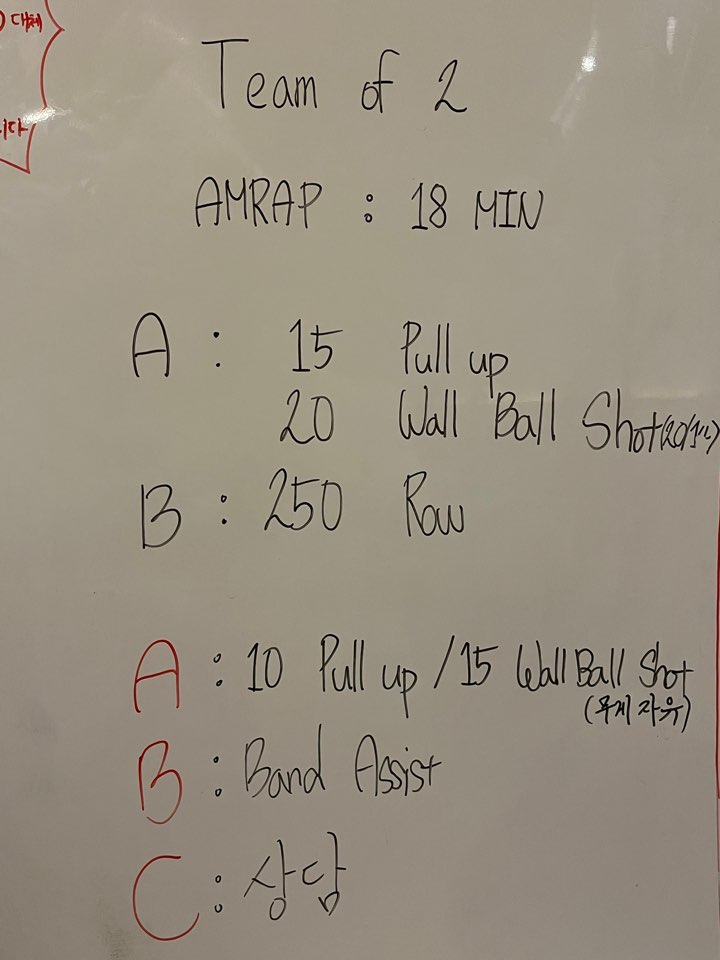 대체
니다
Team of 2
AMRAP : 18 MIN
A : 15 Pull up
20 Wall Ball Shot
B : 250 Row
A : 10 Pull up / 15 Wall Ball Shot
(무게 자유)
B : Band Assist
C : 상담